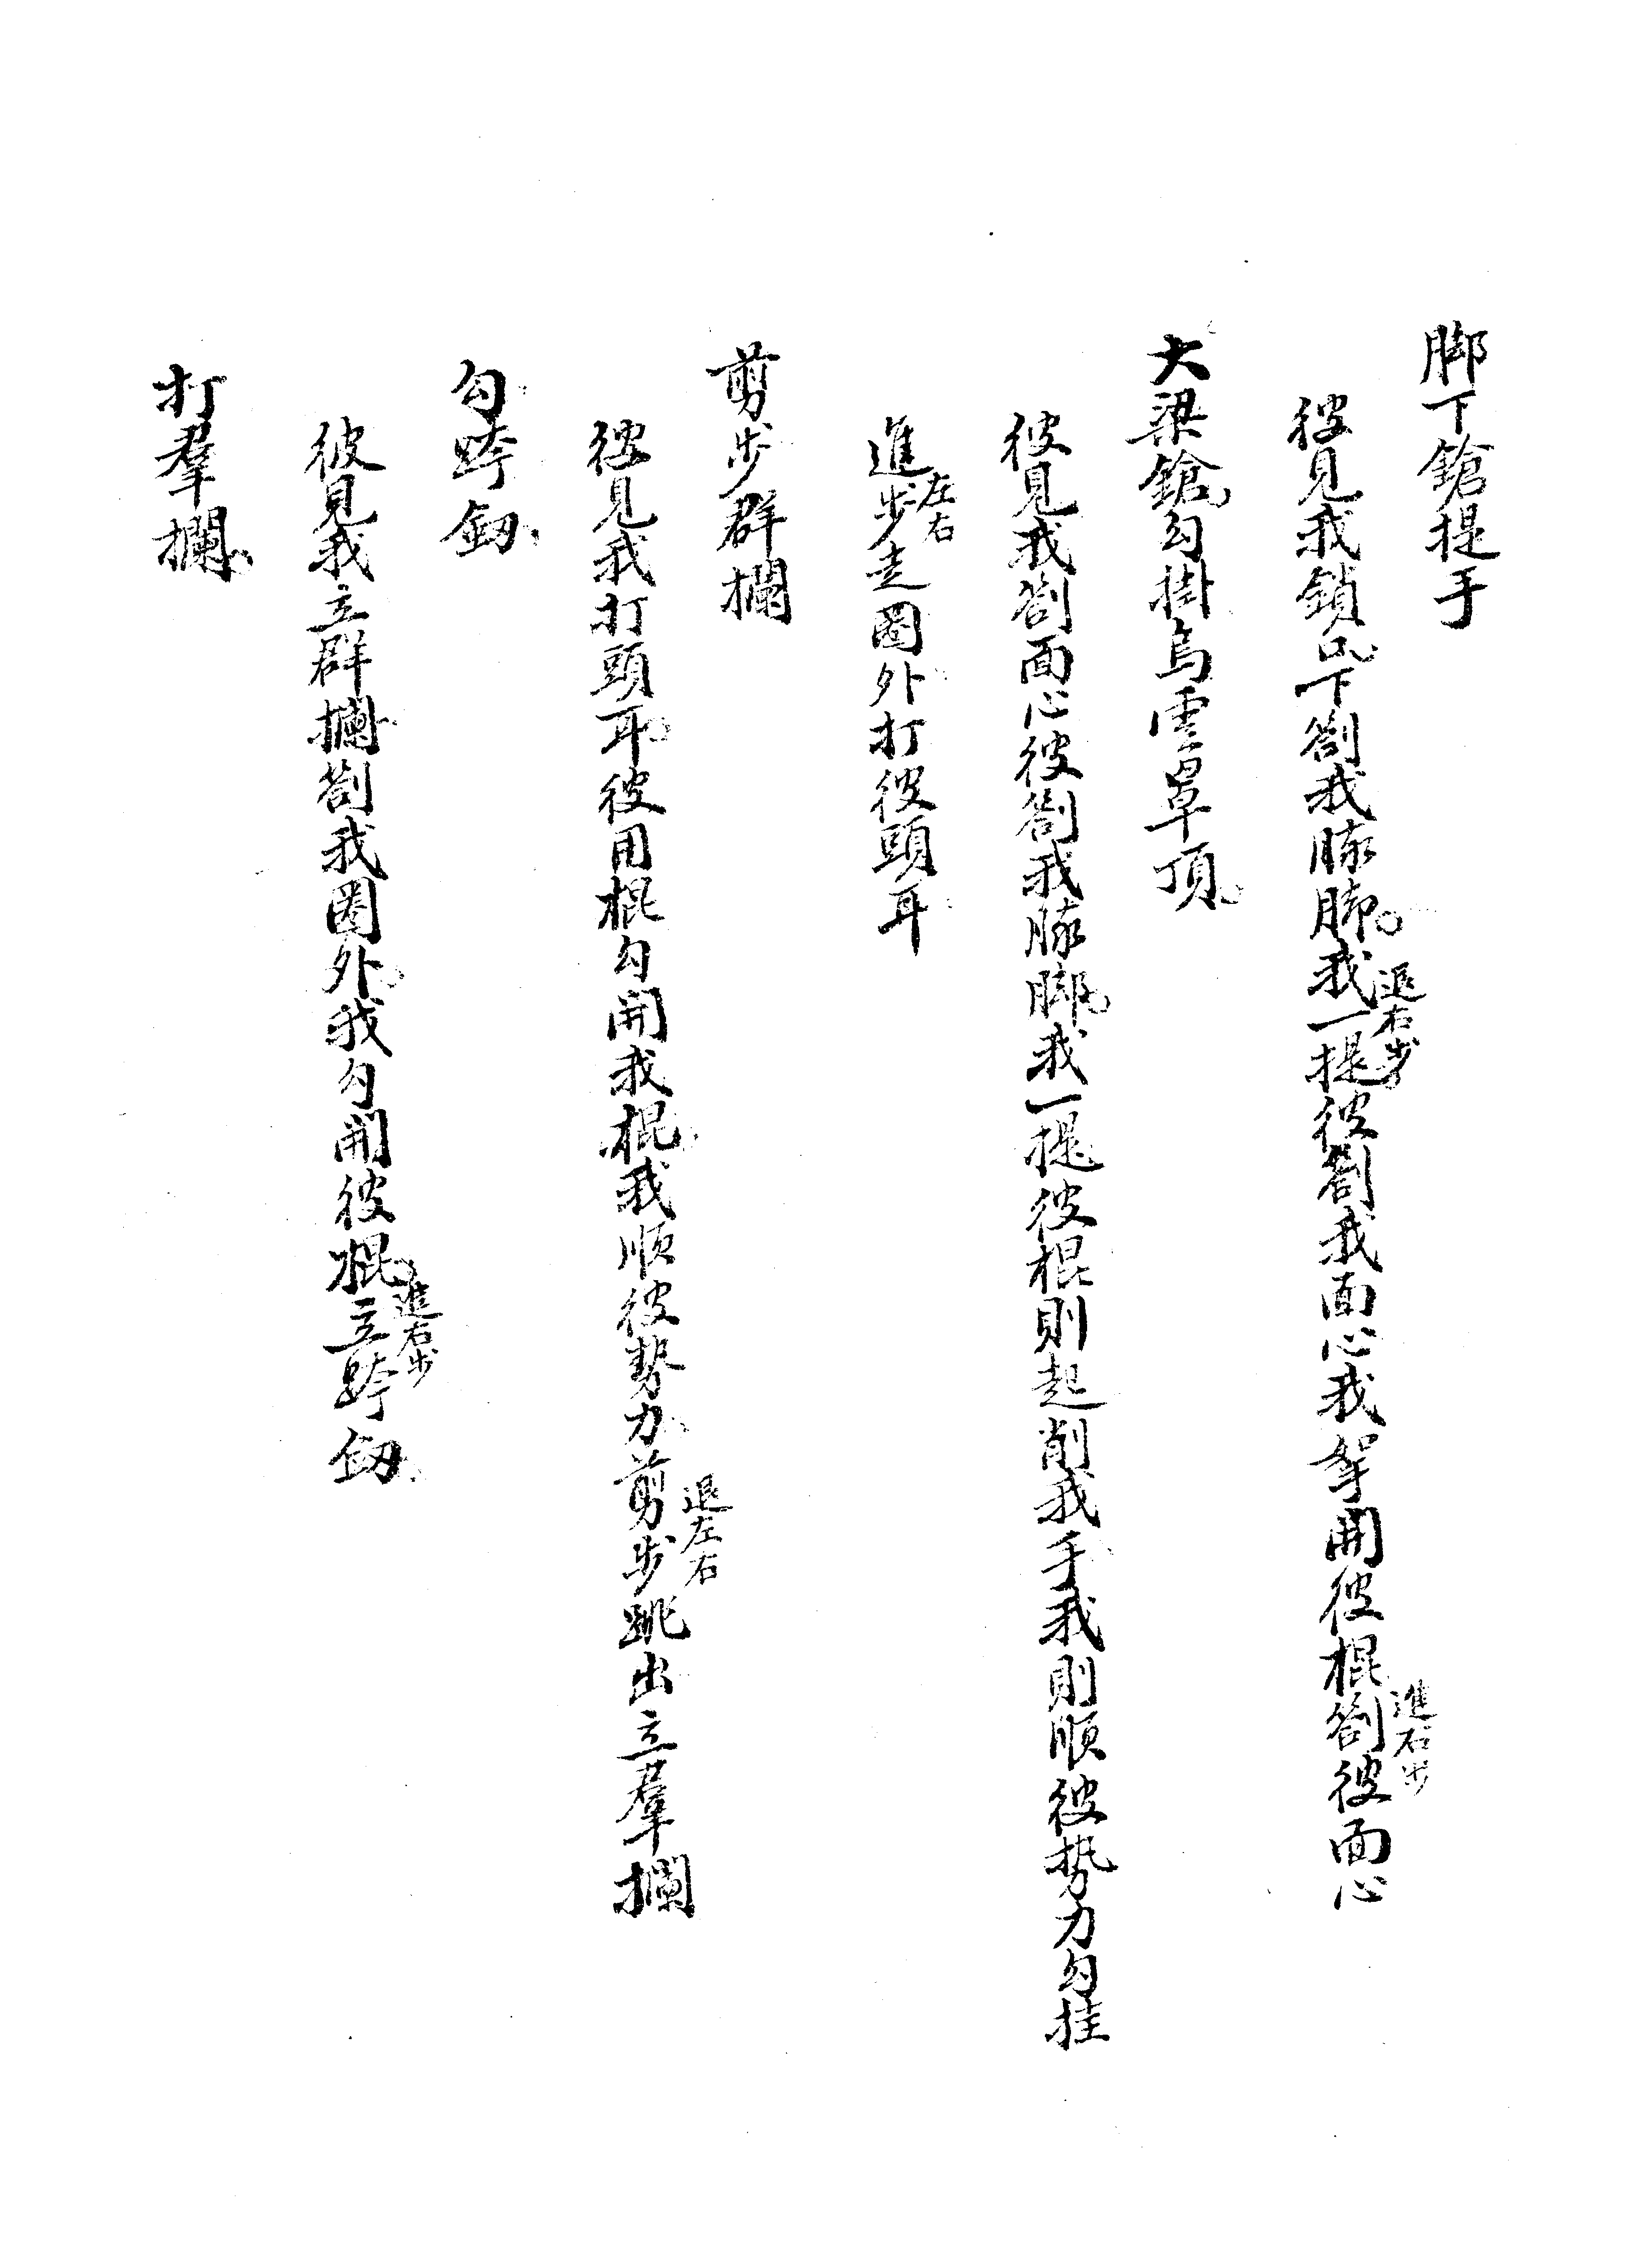 脚下鎗提手
彼見我鎖口下劄我膝脚。我一提彼劄我面心我拏開彼棍劄彼面心
退右步
進右步
大梁鎗勾掛烏雲罩頂。
彼見我劄面心彼劄我膝脚。我一提彼棍則起削我手我則順彼勢力勾挂
進步走圈外打彼頭耳
左右
剪步群攔
彼見我打頭耳。彼用棍勾開我棍。我順彼勢力剪步跳出立羣攔
退左右
勾跨劔
彼見我立群攔劄我圈外。我勾開彼棍立跨劔
進右步
打羣攔。